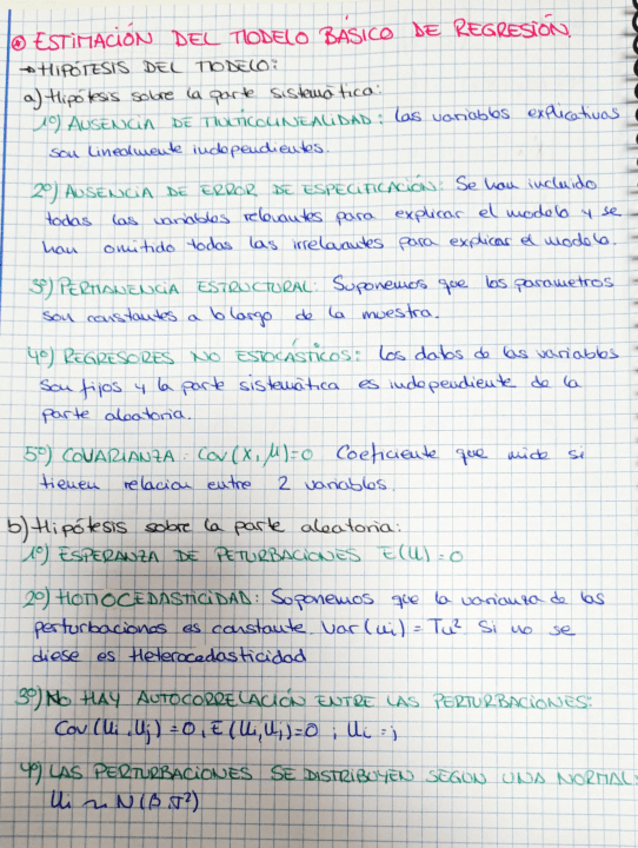 ⊙ ESTIMACIÓN DEL MODELO BÁSICO DE REGRESIÓN.
→ HIPÓTESIS DEL MODELO:
a) Hipótesis sobre la parte sistemática:
1º) AUSENCIA DE MULTICOLINEALIDAD: las variables explicativas
son linealmente independientes.
2º) AUSENCIA DE ERROR DE ESPECIFICACIÓN: Se han incluido
todas las variables relevantes para explicar el modelo y se
han omitido todas las irrelevantes para explicar el modelo.
3º) PERMANENCIA ESTRUCTURAL: Suponemos que los parametros
son constantes a lo largo de la muestra.
4º) REGRESORES NO ESTOCÁSTICOS: los datos de las variables
son fijos y la parte sistemática es independiente de la
parte aleatoria.
5º) COVARIANZA: Cov(X,μ)=0 Coeficiente que mide si
tienen relacion entre 2 variables.
b) Hipótesis sobre la parte aleatoria:
1º) ESPERANZA DE PETURBACIONES E(U)=0
2º) HOMOCEDASTICIDAD: Suponemos que la varianza de las
perturbaciones es constante. Var(ui) = Tu². Si no se
diese es Heterocedasticidad
3º) NO HAY AUTOCORRELACIÓN ENTRE LAS PERTURBACIONES:
Cov(Ui,Uj)=0, E(Ui,Uj)=0 ; Ui = j
4º) LAS PERTURBACIONES SE DISTRIBUYEN SEGÚN UNA NORMAL:
Ui ~ N(β,σ²)